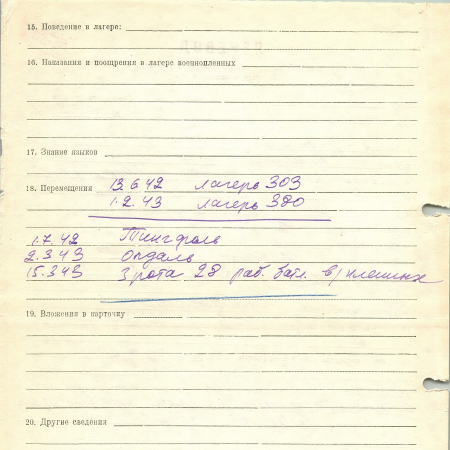 15. Поведение в лагере:
16. Наказания и поощрения в лагере военнопленных
17. Знание языков
18. Перемещения 13.6.42 лагерь 303
1.2.43 лагерь 380
1.7.42 Тингфоль
2.3.43 Опдаль
15.3.43 3 рота 28 раб. бат. в/пленных
19. Вложения в карточку
20. Другие сведения